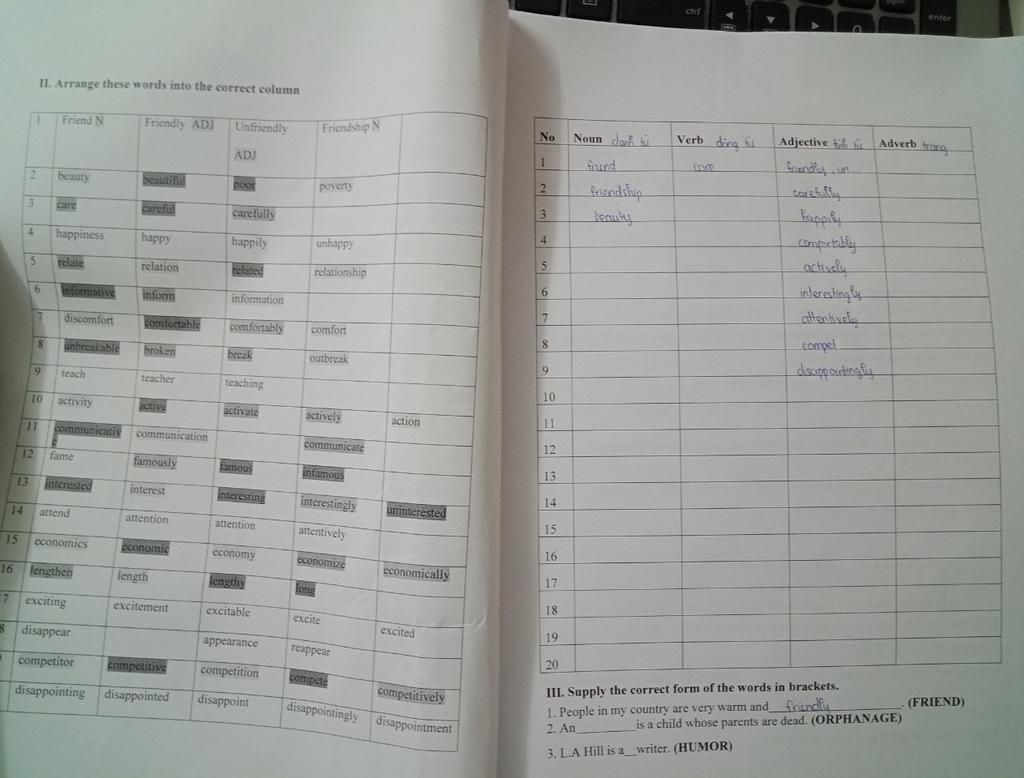 ctrl
enter
II. Arrange these words into the correct column
1 Friend N Friendly ADJ Unfriendly ADJ Friendship N
2 beauty beautiful poor poverty
3 care careful carefully
4 happiness happy happily unhappy
5 relate relation related relationship
6 informative inform information
7 discomfort comfortable comfortably comfort
8 unbreakable broken break outbreak
9 teach teacher teaching
10 activity active activate actively action
11 communicative communication communicate
12 fame famously famous infamous
13 interested interest interesting interestingly uninterested
14 attend attention attention attentively
15 economics economic economy economize economically
16 lengthen length lengthy long
7 exciting excitement excitable excite excited
8 disappear appearance reappear
competitor competitive competition compete competitively
disappointing disappointed disappoint disappointingly disappointment
No Noun danh từ Verb động từ Adjective tính từ Adverb trạng
1 friend care friendly, un
2 friendship carefully
3 beauty happily
4 comfortably
5 actively
6 interestingly
7 attentively
8 compet
9 disappointingly
10
11
12
13
14
15
16
17
18
19
20
III. Supply the correct form of the words in brackets.
1. People in my country are very warm and friendly. (FRIEND)
2. An__________is a child whose parents are dead. (ORPHANAGE)
3. L.A Hill is a__writer. (HUMOR)